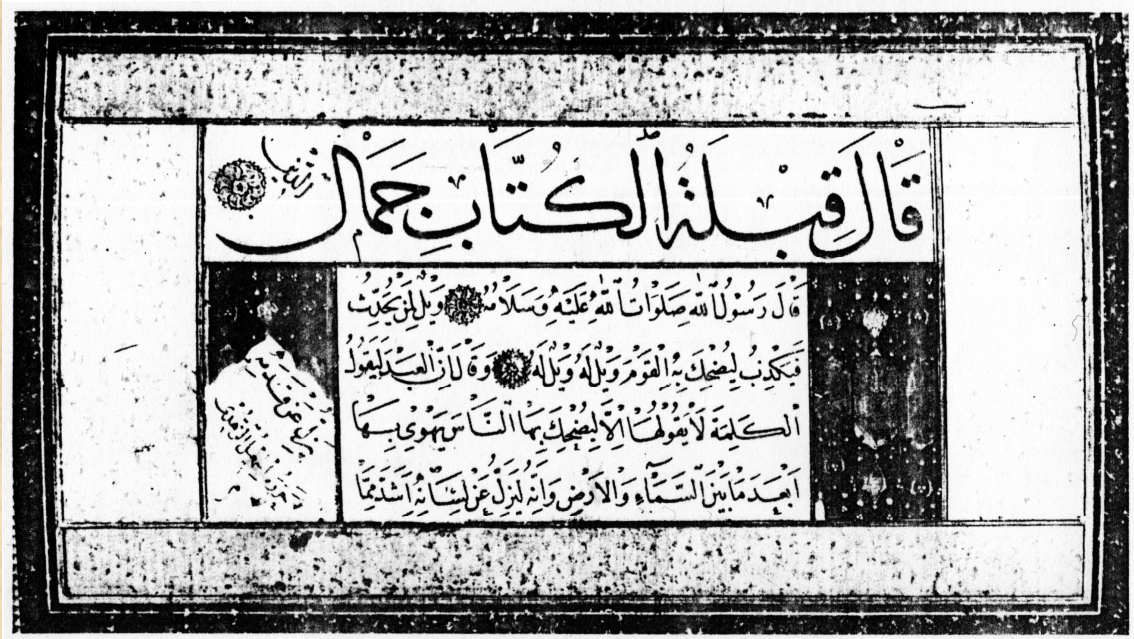 قَالَ قِبْلَةُ الْكُتَّابِ جَمَالُ الدِّينِ
قَالَ رَسُوْلُ اللّٰهِ صَلَوَاتُ اللّٰهِ عَلَيْهِ وَسَلَامُهُ وَيْلٌ لِمَنْ يُحَدِّثُ
فَيَكْذِبُ لِيُضْحِكَ بِهِ الْقَوْمَ وَيْلٌ لَهُ وَيْلٌ لَهُ وَقَالَ اِنَّ الْعَبْدَ لَيَقُولُ
الْكَلِمَةَ لَا يَقُولُهَا اِلَّا لِيُضْحِكَ بِهَا النَّاسَ يَهْوِى بِهَا
اَبْعَدَ مَا بَيْنَ السَّمَآءِ وَالْاَرْضِ وَاِنَّهُ لَيَزِلُّ عَنْ لِسَانِهِ اَشَدَّ مِمَّا
يَزِلُّ عَنْ قَدَمِهِ